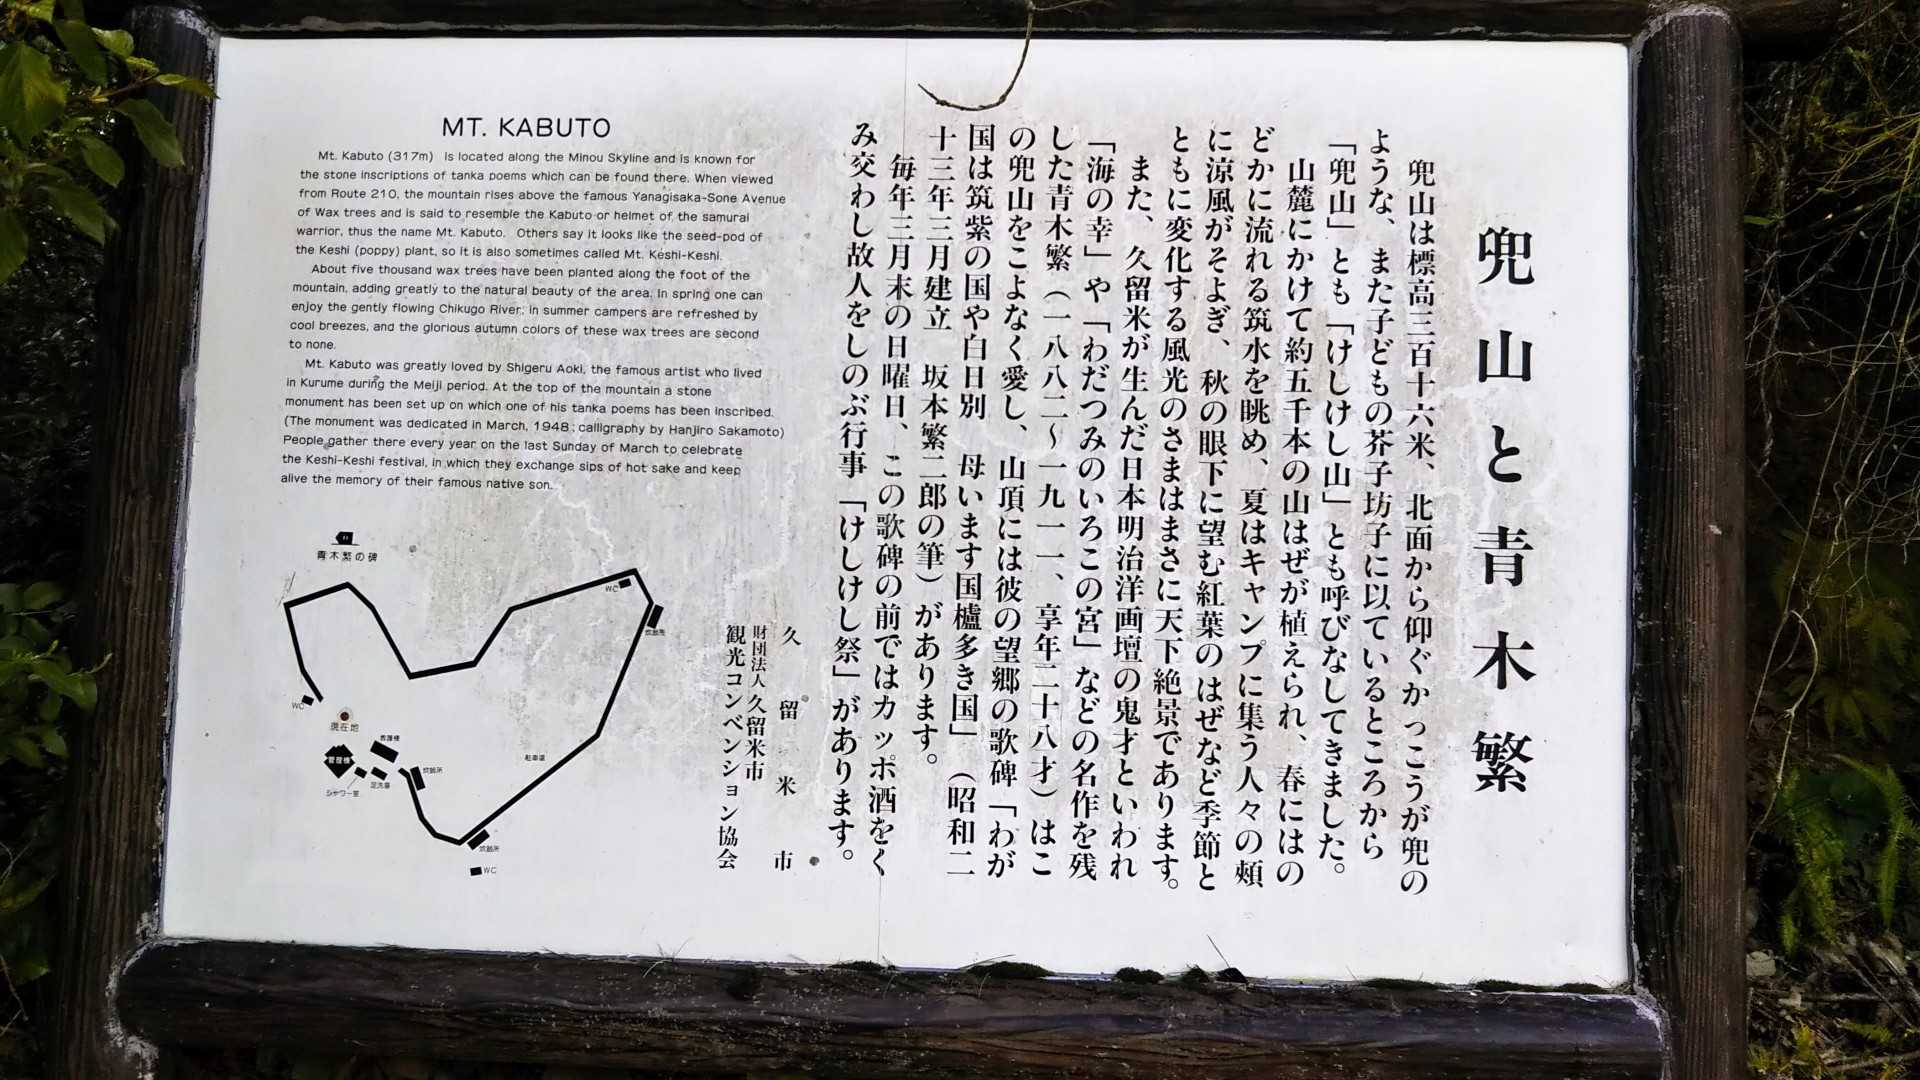 兜山と青木繁
兜山は標高三百十六米、北面から仰ぐかっこうが兜の
ような、また子どもの芥子坊子に以ているところから
「兜山」とも「けしけし山」とも呼びなしてきました。
山麓にかけて約五千本の山はぜが植えられ、春にはの
どかに流れる筑水を眺め、夏はキャンプに集う人々の頬
に涼風がそよぎ、秋の眼下に望む紅葉のはぜなど季節と
ともに変化する風光のさまはまさに天下絶景であります。
また、久留米が生んだ日本明治洋画壇の鬼才といわれ
「海の幸」や「わだつみのいろこの宮」などの名作を残
した青木繁（一八八二〜一九一一、享年二十八才）はこ
の兜山をこよなく愛し、山頂には彼の望郷の歌碑「わが
国は筑紫の国や白日別 母います国櫨多き国」（昭和二
十三年三月建立 坂本繁二郎の筆）があります。
毎年三月末の日曜日、この歌碑の前ではカッポ酒をく
み交わし故人をしのぶ行事「けしけし祭」があります。
久留米市
財団法人 久留米市
観光コンベンション協会
MT. KABUTO
Mt. Kabuto (317m) is located along the Minou Skyline and is known for
the stone inscriptions of tanka poems which can be found there. When viewed
from Route 210, the mountain rises above the famous Yanagisaka-Sone Avenue
of Wax trees and is said to resemble the Kabuto or helmet of the samurai
warrior, thus the name Mt. Kabuto. Others say it looks like the seed-pod of
the Keshi (poppy) plant, so it is also sometimes called Mt. Keshi-Keshi.
About five thousand wax trees have been planted along the foot of the
mountain, adding greatly to the natural beauty of the area. In spring one can
enjoy the gently flowing Chikugo River; in summer campers are refreshed by
cool breezes, and the glorious autumn colors of these wax trees are second
to none.
Mt. Kabuto was greatly loved by Shigeru Aoki, the famous artist who lived
in Kurume during the Meiji period. At the top of the mountain a stone
monument has been set up on which one of his tanka poems has been inscribed.
(The monument was dedicated in March, 1948; calligraphy by Hanjiro Sakamoto)
People gather there every year on the last Sunday of March to celebrate
the Keshi-Keshi festival, in which they exchange sips of hot sake and keep
alive the memory of their famous native son.
青木繁の碑
WC
炊飯所
WC
現在地
管理棟
シャワー室
足洗場
炊飯所
駐車場
炊飯所
WC